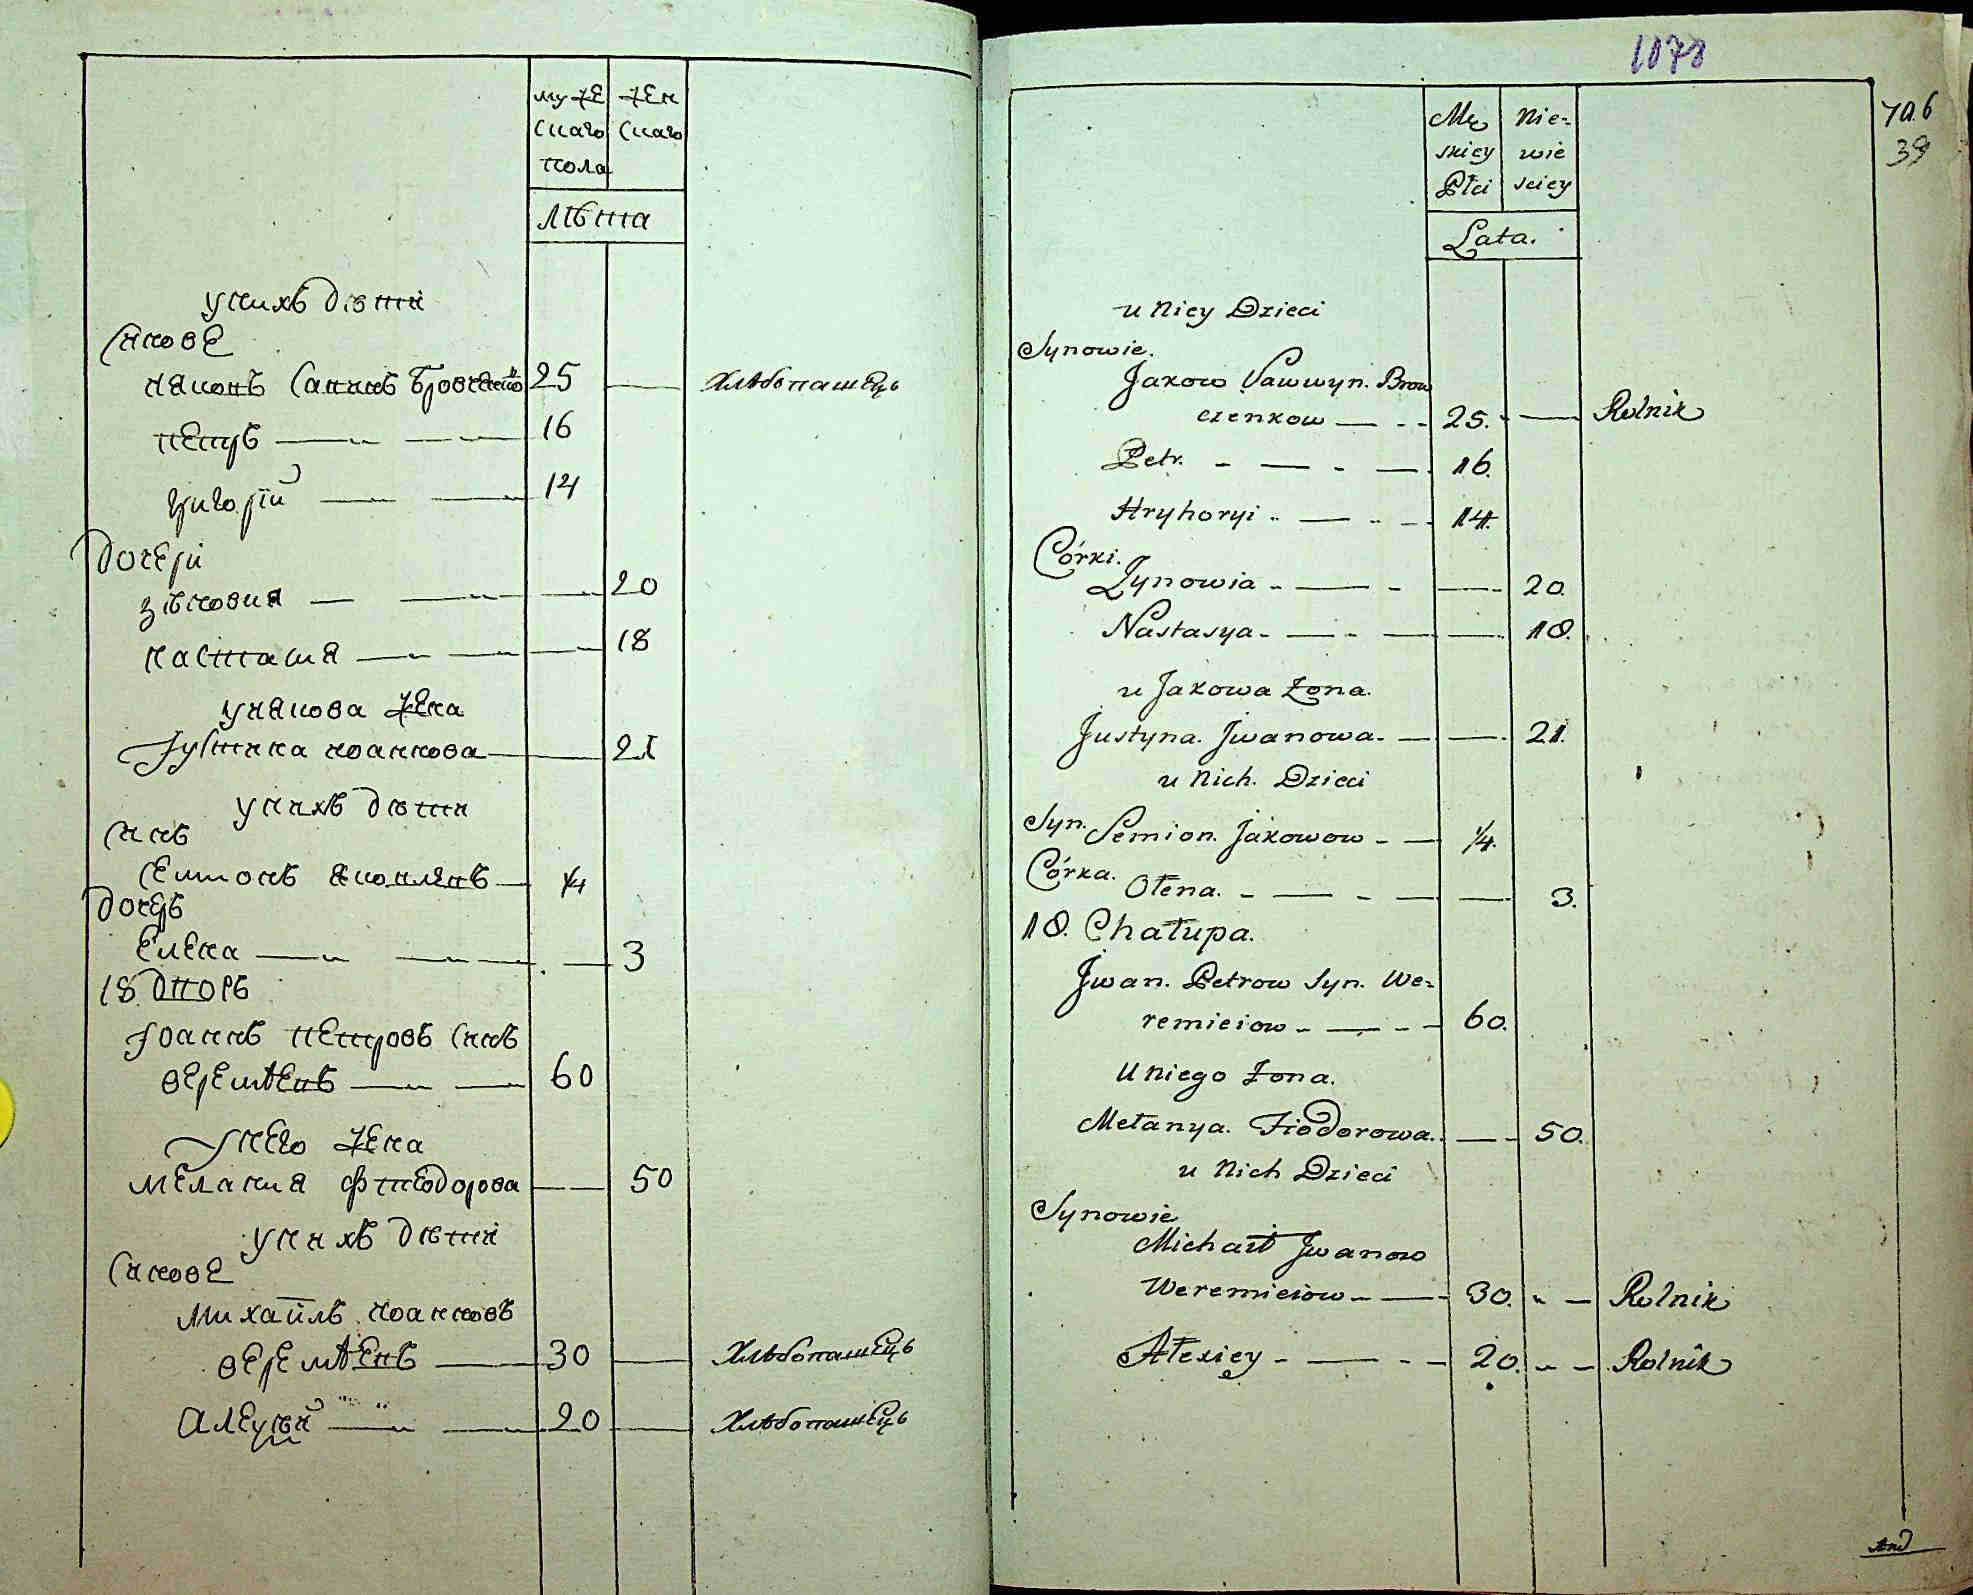 муже
скаго
пола
жен
скаго
лѣта
у нихъ дѣти
Сынове
Иаковъ Савинъ Бровченко 25 Хлѣбопашецъ
Петръ 16
Григорій 14
Дочери
Зѣновия 20
Настасия 18
у Иакова жена
Іустина Иоаннова 21
у нихъ дѣти
Сынъ
Семионъ Яковлевъ 1/4
Дочерь
Елена 3
18 дворъ
Іоаннъ Петровъ Сынъ
Веремѣевъ 60
У него жена
Мелания Фтеодорова 50
у нихъ дѣти
Сынове
Михаилъ Иоанновъ
Веремѣевъ 30 Хлѣбопашецъ
Алеѯѣй 20 Хлѣбопашецъ
1078
70.6
39
Mę
skiey
Płci
Nie-
wie
sciey
Lata.
u Niey Dzieci
Synowie.
Jakow Sawwyn. Brow
czenkow 25. Rolnik
Petr. 16.
Hryhoryi 14.
Córki.
Zynowia 20.
Nastasya 18.
u Jakowa Żona.
Justyna. Jwanowa. 21.
u Nich. Dzieci
Syn. Semion. Jakowow 1/4.
Córka. Ołena. 3.
18. Chałupa.
Jwan. Petrow Syn. We-
remieiow 60.
U niego Żona.
Mełanya. Fiodorowa. 50.
u Nich Dzieci
Synowie
Michaił Jwanow
Weremieiow 30. Rolnik
Ałexiey 20. Rolnik
And